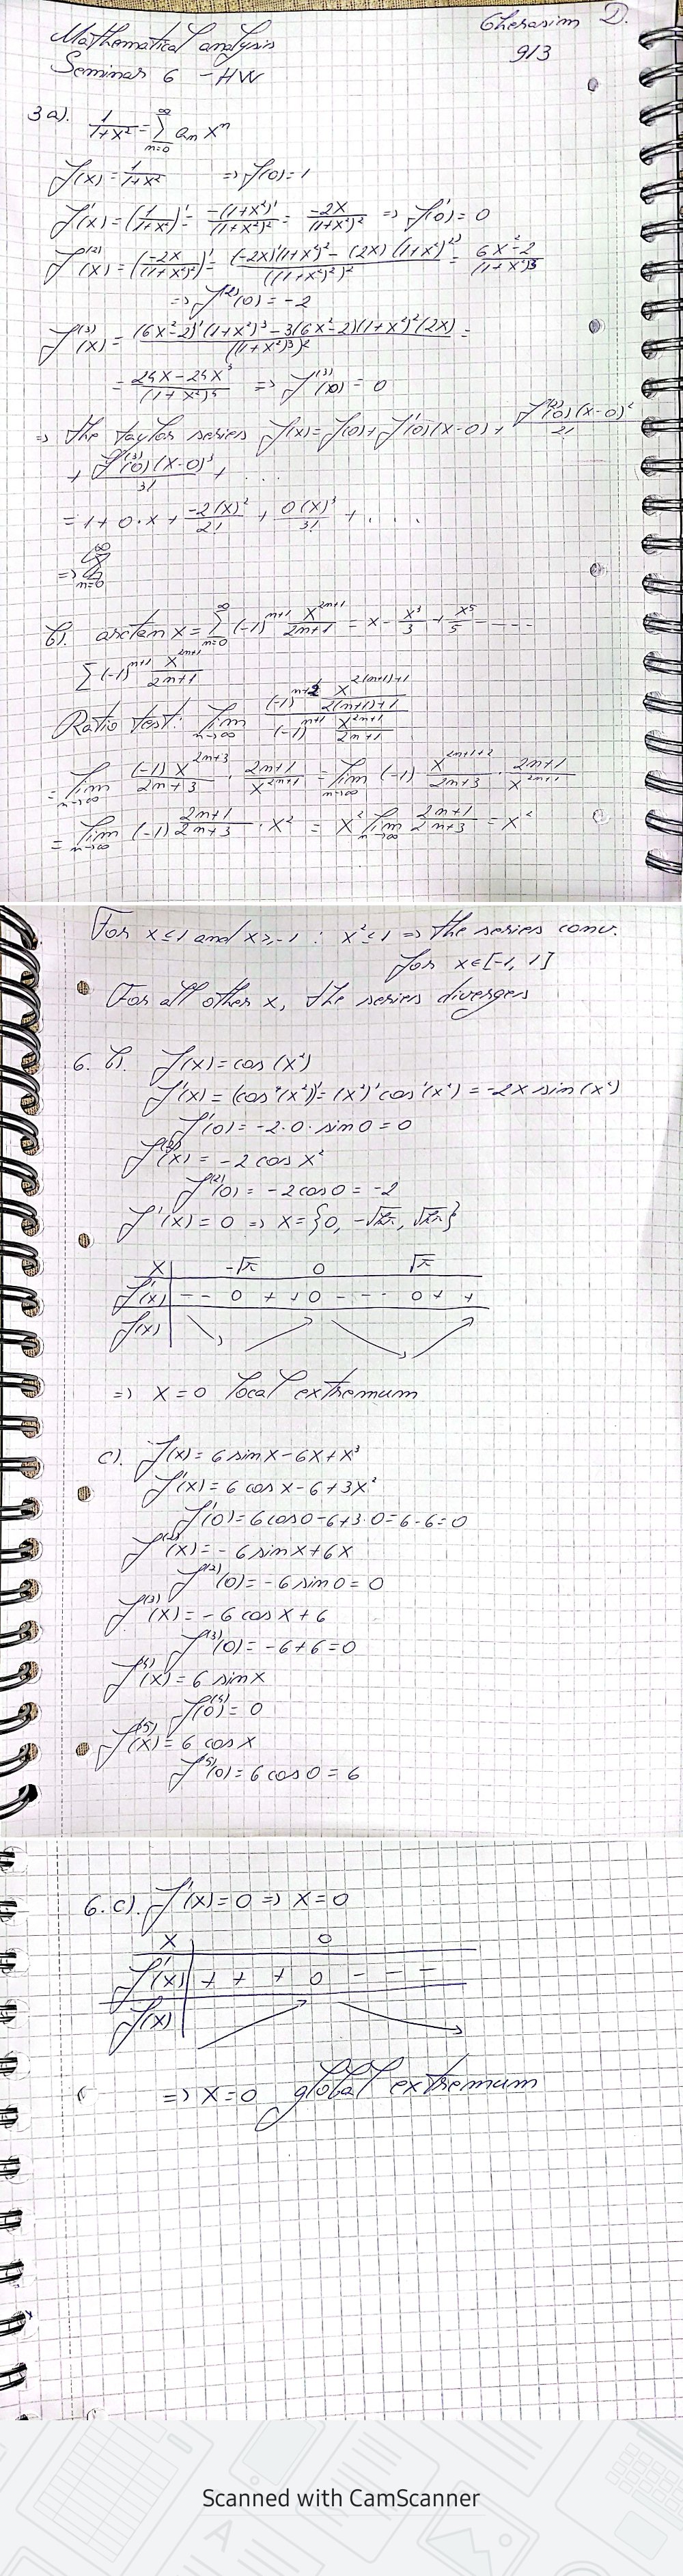 Mathematical analysis
Gherasim D.
Seminar 6 - HW
913
3 a). 1/(1+x²) = ∑_{n=0}^{∞} a_n x^n
f(x) = 1/(1+x²) => f(0) = 1
f'(x) = (1/(1+x²))' = -(1+x²)'/(1+x²)² = -2x/(1+x²)² => f'(0) = 0
f^(2)(x) = (-2x/(1+x²)²)' = ((-2x)'(1+x²)² - (2x)(1+x²)²)')/((1+x²)²)² = (6x²-2)/(1+x²)³
=> f^(2)(0) = -2
f^(3)(x) = ((6x²-2)'(1+x²)³ - 3(6x²-2)(1+x²)²(2x))/((1+x²)³)² =
= (24x-24x³)/(1+x²)⁴ => f^(3)(0) = 0
=> the taylor series f(x) = f(0) + f'(0)(x-0) + f^(2)(0)(x-0)²/2!
+ f^(3)(0)(x-0)³/3! + ....
= 1 + 0·x + -2(x)²/2! + 0(x)³/3! + ....
=> ∑_{n=0}^{∞}
b). arctan x = ∑_{n=0}^{∞} (-1)^{n+1} x^{2n+1}/(2n+1) = x - x³/3 + x⁵/5 - ----
∑ (-1)^{n+1} x^{2n+1}/(2n+1)
Ratio test: lim_{n→∞} ((-1)^{n+2} x^{2(n+1)+1}/(2(n+1)+1))/((-1)^{n+1} x^{2n+1}/(2n+1))
= lim_{n→∞} (-1)x^{2n+3}/(2n+3) · (2n+1)/x^{2n+1} = lim_{n→∞} (-1) x^{2n+1+2}/(2n+3) · (2n+1)/x^{2n+1}
= lim_{n→∞} (-1) (2n+1)/(2n+3) · x² = x² lim_{n→∞} (2n+1)/(2n+3) = x²
For x≤1 and x≥-1 : x²≤1 => the series conv.
for x∈[-1, 1]
For all other x, the series diverges
6. b). f(x) = cos(x²)
f'(x) = (cos(x²))' = (x²)' cos'(x²) = -2x sin(x²)
f'(0) = -2·0·sin 0 = 0
f^(2)(x) = -2 cos x²
f^(2)(0) = -2 cos 0 = -2
f'(x) = 0 => x = {0, -√π, √π}
x | -√π 0 √π
f'(x) | - - 0 + + 0 - - - 0 + +
f(x) | ↘ ↗ ↘ ↗
=> x = 0 local extremum
c). f(x) = 6 sin x - 6x + x³
f'(x) = 6 cos x - 6 + 3x²
f'(0) = 6 cos 0 - 6 + 3·0 = 6 - 6 = 0
f^(2)(x) = -6 sin x + 6x
f^(2)(0) = -6 sin 0 = 0
f^(3)(x) = -6 cos x + 6
f^(3)(0) = -6 + 6 = 0
f^(4)(x) = 6 sin x
f^(4)(0) = 0
f^(5)(x) = 6 cos x
f^(5)(0) = 6 cos 0 = 6
6. c). f'(x) = 0 => x = 0
x | 0
f'(x) | + + + 0 - - -
f(x) | ↗ ↘
=> x = 0 global extremum
Scanned with CamScanner